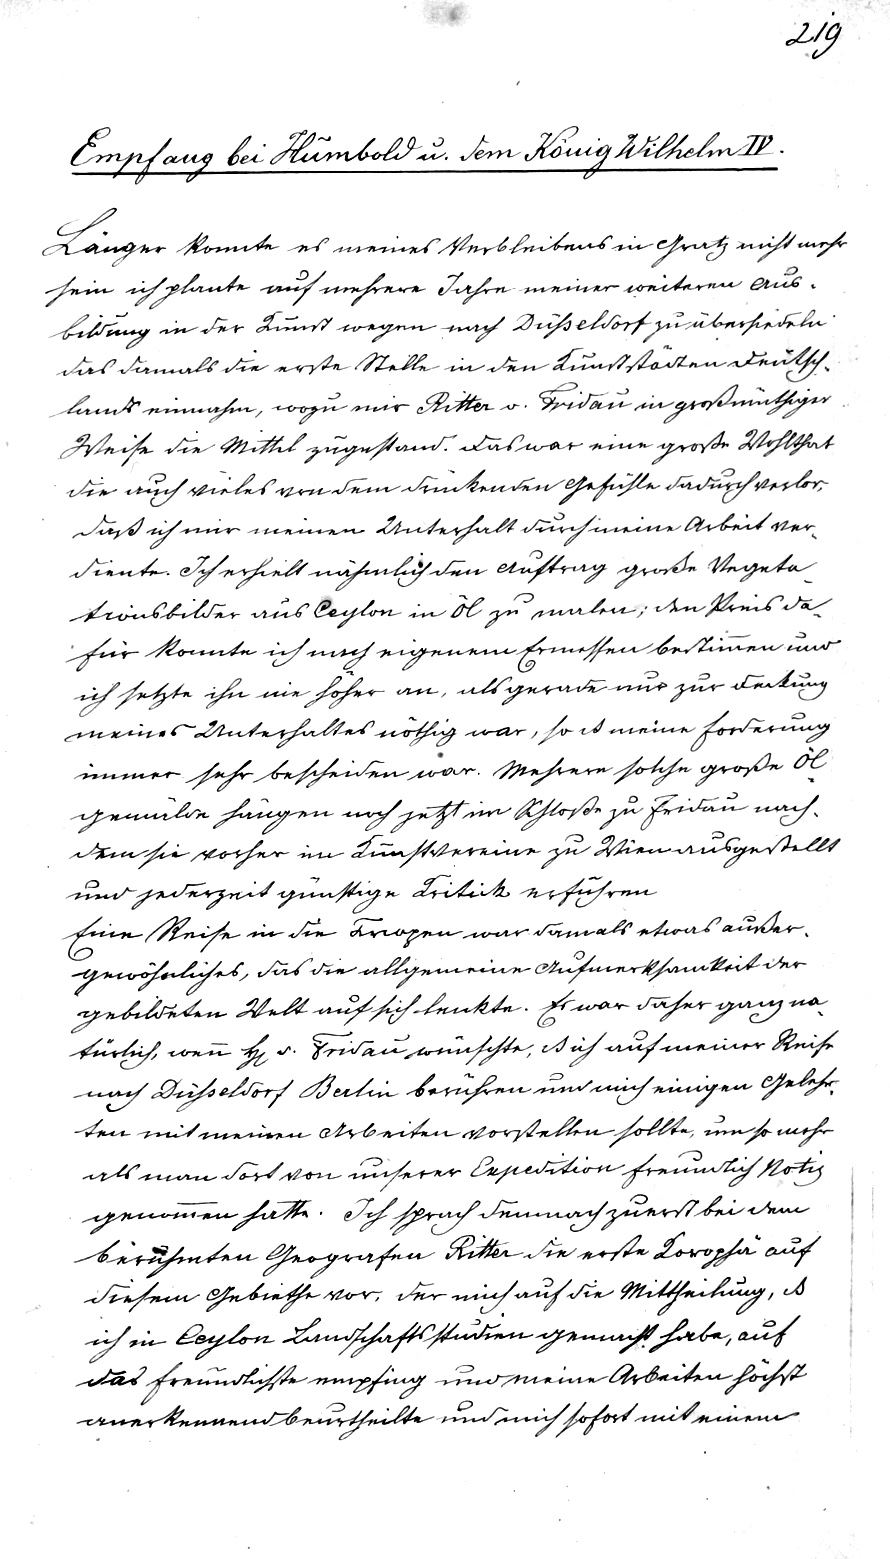 219
Empfang bei Humbold u. dem König Wilhelm IV.
Länger konnte es meines Verbleibens in Gratz nicht mehr
sein ich plante auf mehrere Jahre meiner weiteren Aus-
bildung in der Kunst wegen nach Düßeldorf zu übersiedeln
das damals die erste Stelle in den Kunststädten Deutsch-
lands einnahm, wozu mir Ritter v. Fridau in großmüthiger
Weise die Mittel zugestand. Das war eine große Wohlthat
die auch vieles von dem drückenden Gefühle dadurch verlor,
daß ich mir meinen Unterhalt durch meine Arbeit ver-
diente. Ich erhielt nähmlich den Auftrag große Vegeta-
tionsbilder aus Ceylon in Öl zu malen; den Preis da-
für konnte ich nach eigenem Ermessen bestim̅en und
ich setzte ihn nie höher an, als gerade nur zur Deckung
meines Unterhaltes nöthig war, so ds meine Forderung
immer sehr bescheiden war. Mehrere solche große Öl-
gemälde hängen noch jetzt im Schloße zu Fridau nach-
dem sie vorher im Kunstvereine zu Wien ausgestellt
und jederzeit günstige Kritick erfuhren
Eine Reise in die Tropen war damals etwas außer-
gewöhnliches, das die allgemeine Aufmerksamkeit der
gebildeten Welt auf sich lenkte. Es war daher ganz na-
türlich, wen̅ H v. Fridau wünschte, ds ich auf meiner Reise
nach Düßeldorf Berlin berühren und mich einigen Gelehr-
ten mit meinen Arbeiten vorstellen sollte, um so mehr
als man dort von unserer Expedition freundlich Notiz
genom̅en hatte. Ich sprach demnach zuerst bei dem
berühmten Geografen Ritter die erste Koryphä auf
diesem Gebiethe vor, der mich auf die Mittheilung, ds
ich in Ceylon Landschaftsstudien gemacht habe, auf
das freundlichste empfing und meine Arbeiten höchst
anerkennend beurtheilte und mich sofort mit einem